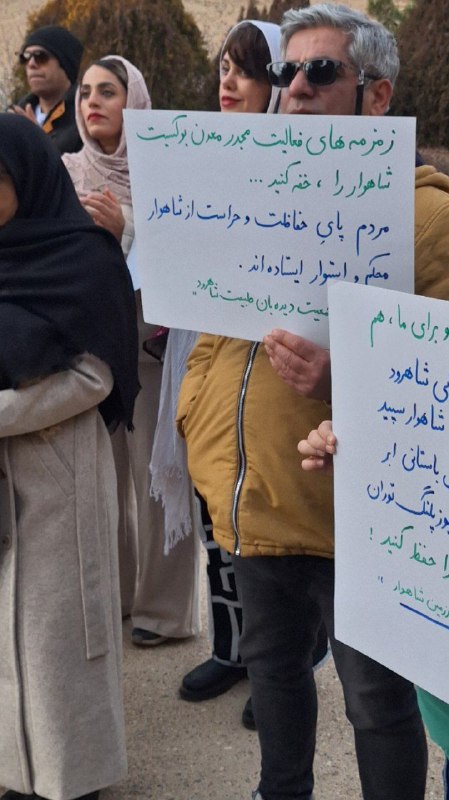 زمزمه های فعالیت مجدد معدن بوکسیت
شاهوار را ، خفه کنید ...
مردم پایِ حفاظت و حراست از شاهوار
محکم و استوار ایستاده اند .
دیده بان طبیعت شاهرود
و برای ما ، هم
شاهرود
شاهوار سپید
باستانی ابر
یوزپلنگ توران
را حفظ کنید !
شاهوار "